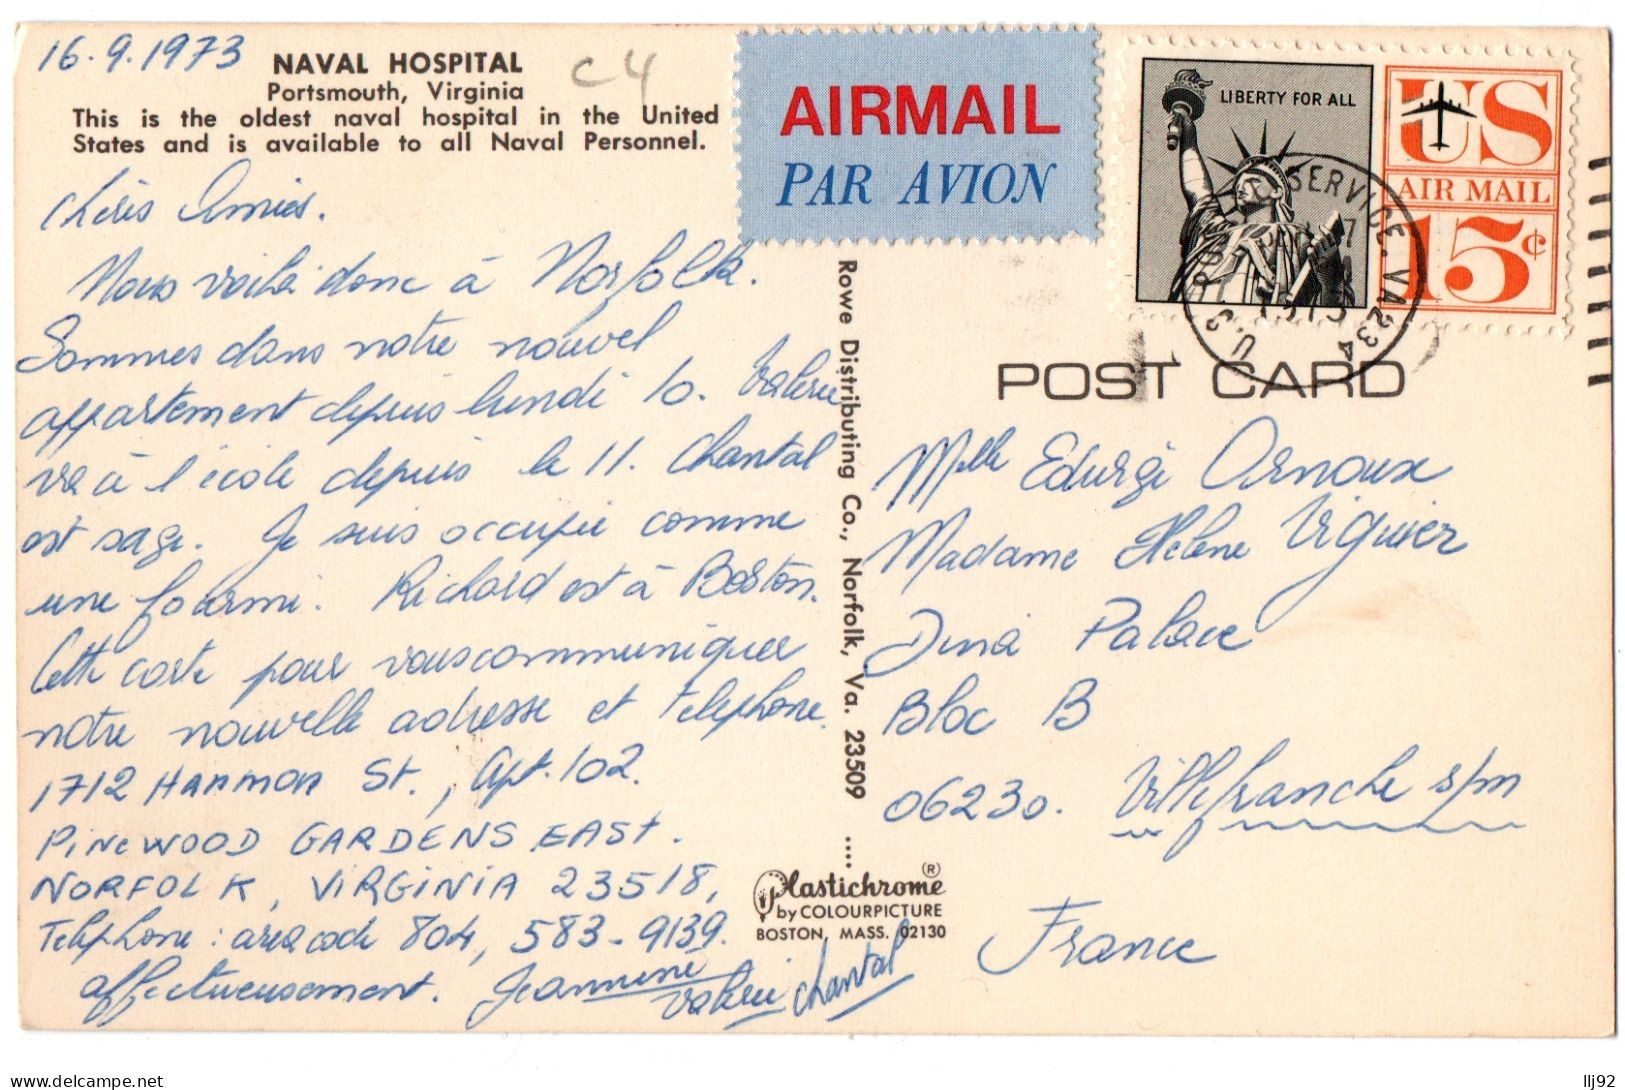 16.9.1973
NAVAL HOSPITAL
C4
Portsmouth, Virginia
This is the oldest naval hospital in the United
States and is available to all Naval Personnel.
Chéris Amies.
Nous voilà donc à Norfolk.
Sommes dans notre nouvel
appartement depuis lundi 10. Valérie
va à l'école depuis le 11. Chantal
est sage. Je suis occupée comme
une fourmi. Richard est à Boston.
Cette carte pour vous communiquer
notre nouvelle adresse et telephone.
1712 HARMON St., Apt. 102.
PINEWOOD GARDENS EAST.
NORFOLK, VIRGINIA 23518,
Telephone : area code 804, 583-9139.
affectueusement. Jeannine
Valérie Chantal
AIRMAIL
PAR AVION
LIBERTY FOR ALL
US
AIR MAIL
15¢
U.S. POSTAL SERVICE. VA 234
1973
Rowe Distributing Co., Norfolk, Va. 23509 ....
POST CARD
Mlle Arnoux
Madame Helene Viguier
Palace
Bloc B
06230. Villefranche s/m
France
Plastichrome ®
by COLOURPICTURE
BOSTON, MASS. 02130
llj92